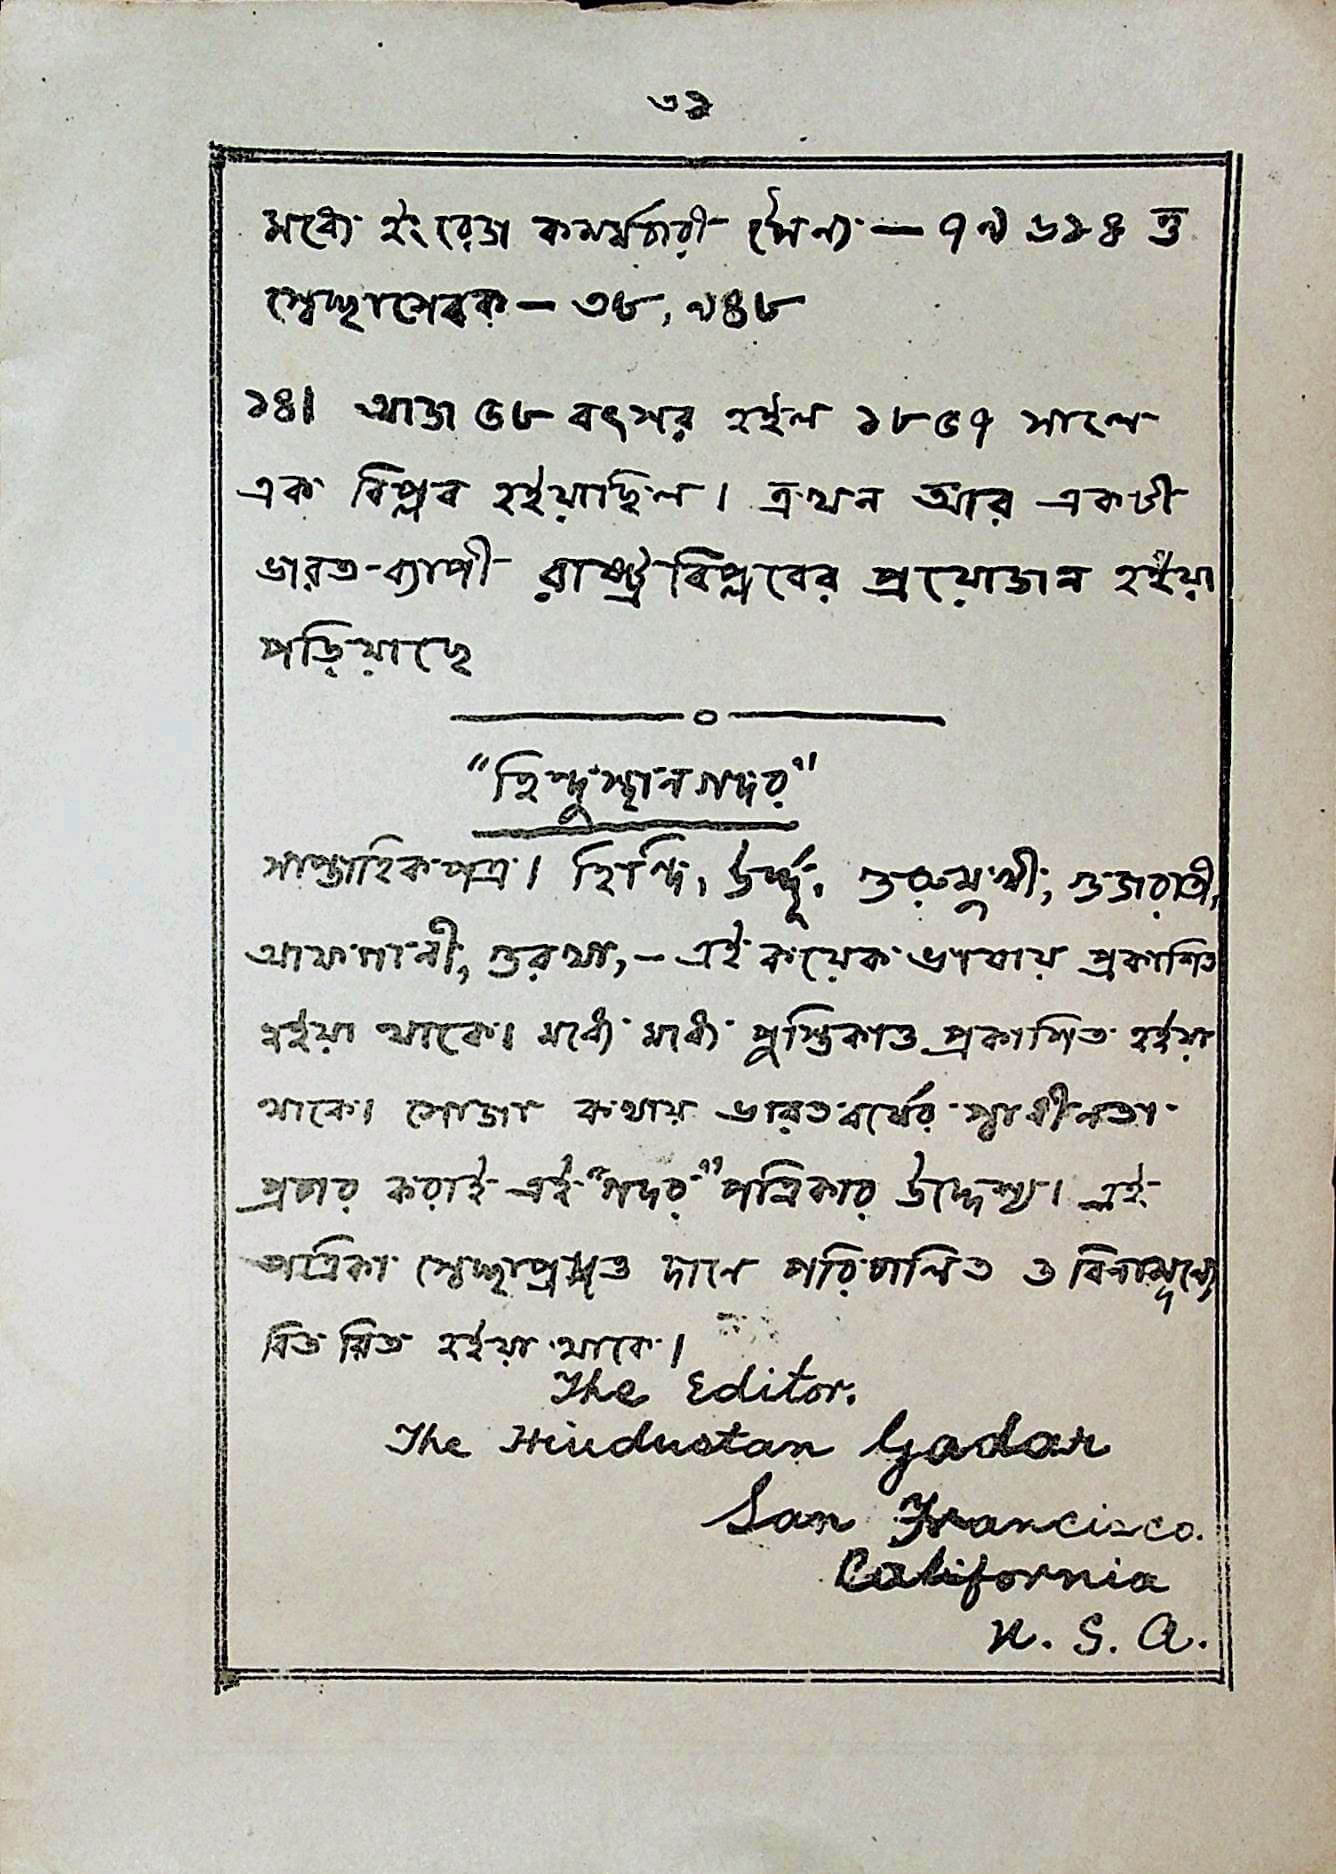 ৩১
মধ্যে ইংরেজ কর্ম্মচারী সৈন্য — ৭৯৬১৪ ও
স্বেচ্ছাসেবক — ৩৮,৯৪৮
১৪। আজ ৫৮ বৎসর হইল ১৮৫৭ সালে
এক বিপ্লব হইয়াছিল। এখন আর একটী
ভারত-ব্যাপী রাষ্ট্রবিপ্লবের প্রয়োজন হইয়া
পড়িয়াছে
"হিন্দুস্থান গদর"
সাপ্তাহিক পত্র। হিন্দি, উর্দ্দূ, গুরুমুখী, গুজরাতী,
আফগানী, গুরখা, — এই কয়েক ভাষায় প্রকাশিত
হইয়া থাকে। মধ্যে মধ্যে পুস্তিকাও প্রকাশিত হইয়া
থাকে। সোজা কথায় ভারতবর্ষের স্বাধীনতা
প্রচার করাই এই "গদর" পত্রিকার উদ্দেশ্য। এই
পত্রিকা স্বেচ্ছাপ্রসূত দানে পরিচালিত ও বিনামূল্যে
বিতরিত হইয়া থাকে।
The Editor.
The Hindustan Gadar
San Francisco.
California
U. S. A.